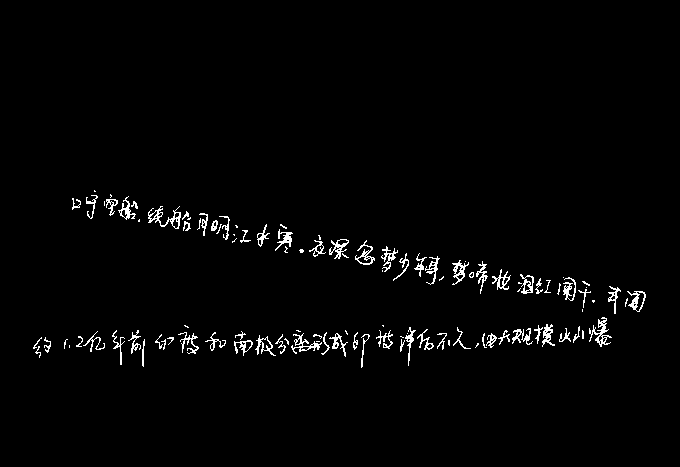 口守空船，绕船月明江水寒。夜深忽梦少年事，梦啼妆泪红阑干。我闻
约1.2亿年前印度和南极分离形成印度洋后不久，由大规模火山爆